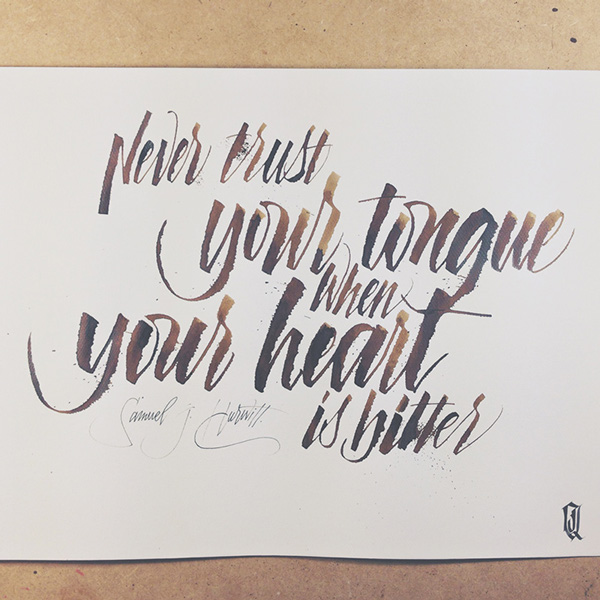 Never trust
your tongue
when
your heart
is bitter
Samuel J. Hurwitt